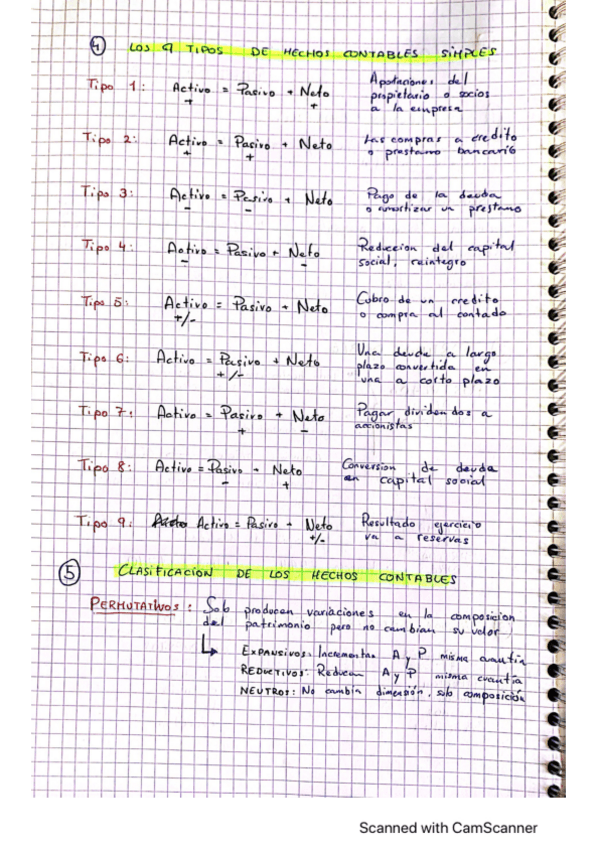 4 LOS 9 TIPOS DE HECHOS CONTABLES SIMPLES
Tipo 1: Activo = Pasivo + Neto Aportaciones del
+ + propietario o socios
a la empresa
Tipo 2: Activo = Pasivo + Neto Las compras a credito
+ + o prestamo bancario
Tipo 3: Activo = Pasivo + Neto Pago de la deuda
- - o amortizar un prestamo
Tipo 4: Activo = Pasivo + Neto Reduccion del capital
- - social, reintegro
Tipo 5: Activo = Pasivo + Neto Cobro de un credito
+/- o compra al contado
Tipo 6: Activo = Pasivo + Neto Una deuda a largo
+/- plazo convertida en
una a corto plazo
Tipo 7: Activo = Pasivo + Neto Pagar dividendos a
+ - accionistas
Tipo 8: Activo = Pasivo + Neto Conversion de deuda
- + en capital social
Tipo 9: Activo = Pasivo + Neto Resultado ejercicio
+/- va a reservas
5 CLASIFICACION DE LOS HECHOS CONTABLES
PERMUTATIVOS: Solo producen variaciones en la composicion
del patrimonio pero no cambian su valor
↳ EXPANSIVOS: Incrementan A y P misma cuantía
REDUCTIVOS: Reducen A y P misma cuantía
NEUTROS: No cambia dimensión, solo composición
Scanned with CamScanner